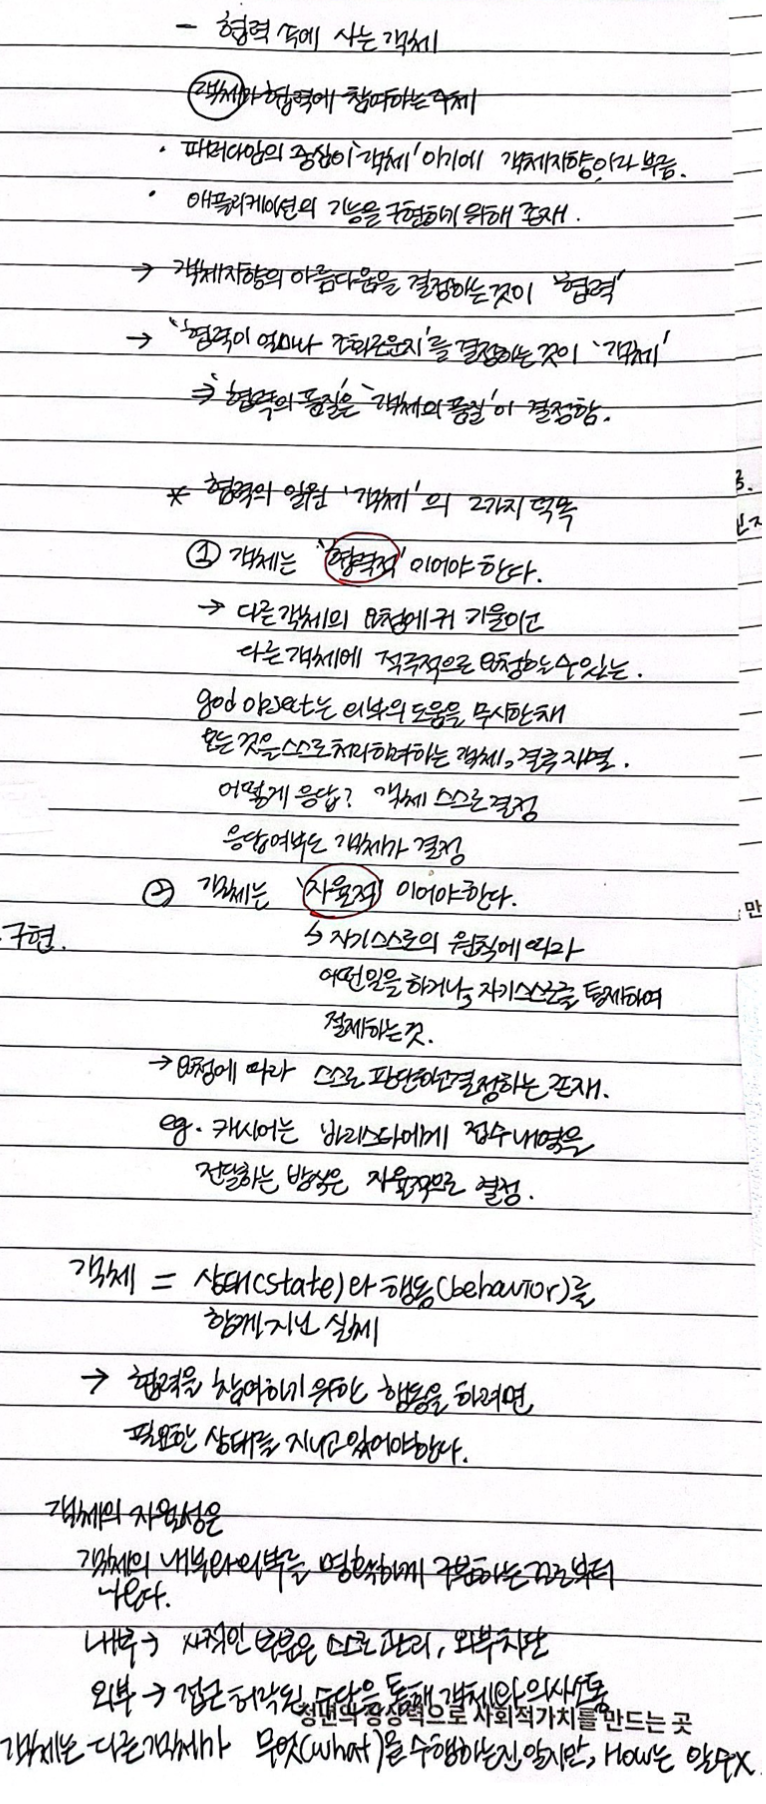 - 협력 속에 사는 객체
객체가 협력에 참여하는 주체
· 패러다임의 중심이 '객체' 이기에 객체지향이라 부름.
· 애플리케이션의 기능을 구현하기 위해 존재.
→ 객체지향의 아름다움을 결정하는 것이 '협력'
→ '협력이 얼마나 조화로운지'를 결정하는 것이 '객체'
⇒ '협력의 품질'은 '객체의 품질'이 결정함.
* 협력의 일원 '객체'의 2가지 덕목
① 객체는 '협력적'이어야 한다.
→ 다른 객체의 요청에 귀 기울이고
다른 객체에 적극적으로 요청하는 수 있는.
god object는 외부의 도움을 무시한채
모든 것을 스스로 처리하려하는 객체, 결국 자멸.
어떻게 응답? 객체 스스로 결정
응답여부도 객체가 결정
② 객체는 '자율적' 이어야한다.
구현.
↳ 자기스스로의 원칙에 따라
어떤일을 하거나, 자기스스로를 통제하여
절제하는 것.
→ 요청에 따라 스스로 판단하고 결정하는 존재.
eg. 캐시어는 바리스타에게 접수내역을
전달하는 방식은 자율적으로 결정.
객체 = 상태(state)와 행동(behavior)를
함께 지닌 실체
→ 협력을 참여하기 위한 행동을 하려면
필요한 상태를 지니고 있어야한다.
객체의 자율성은
객체의 내부와 외부를 명확하게 구분하는 것으로부터
나온다.
내부 → 사적인 부분은 스스로 관리, 외부차단
외부 → 접근 허락된 수단을 통해 객체와 의사소통
청년의 상상력으로 사회적가치를 만드는 곳
객체는 다른객체가 무엇(what)을 수행하는진 알지만, How는 알수X